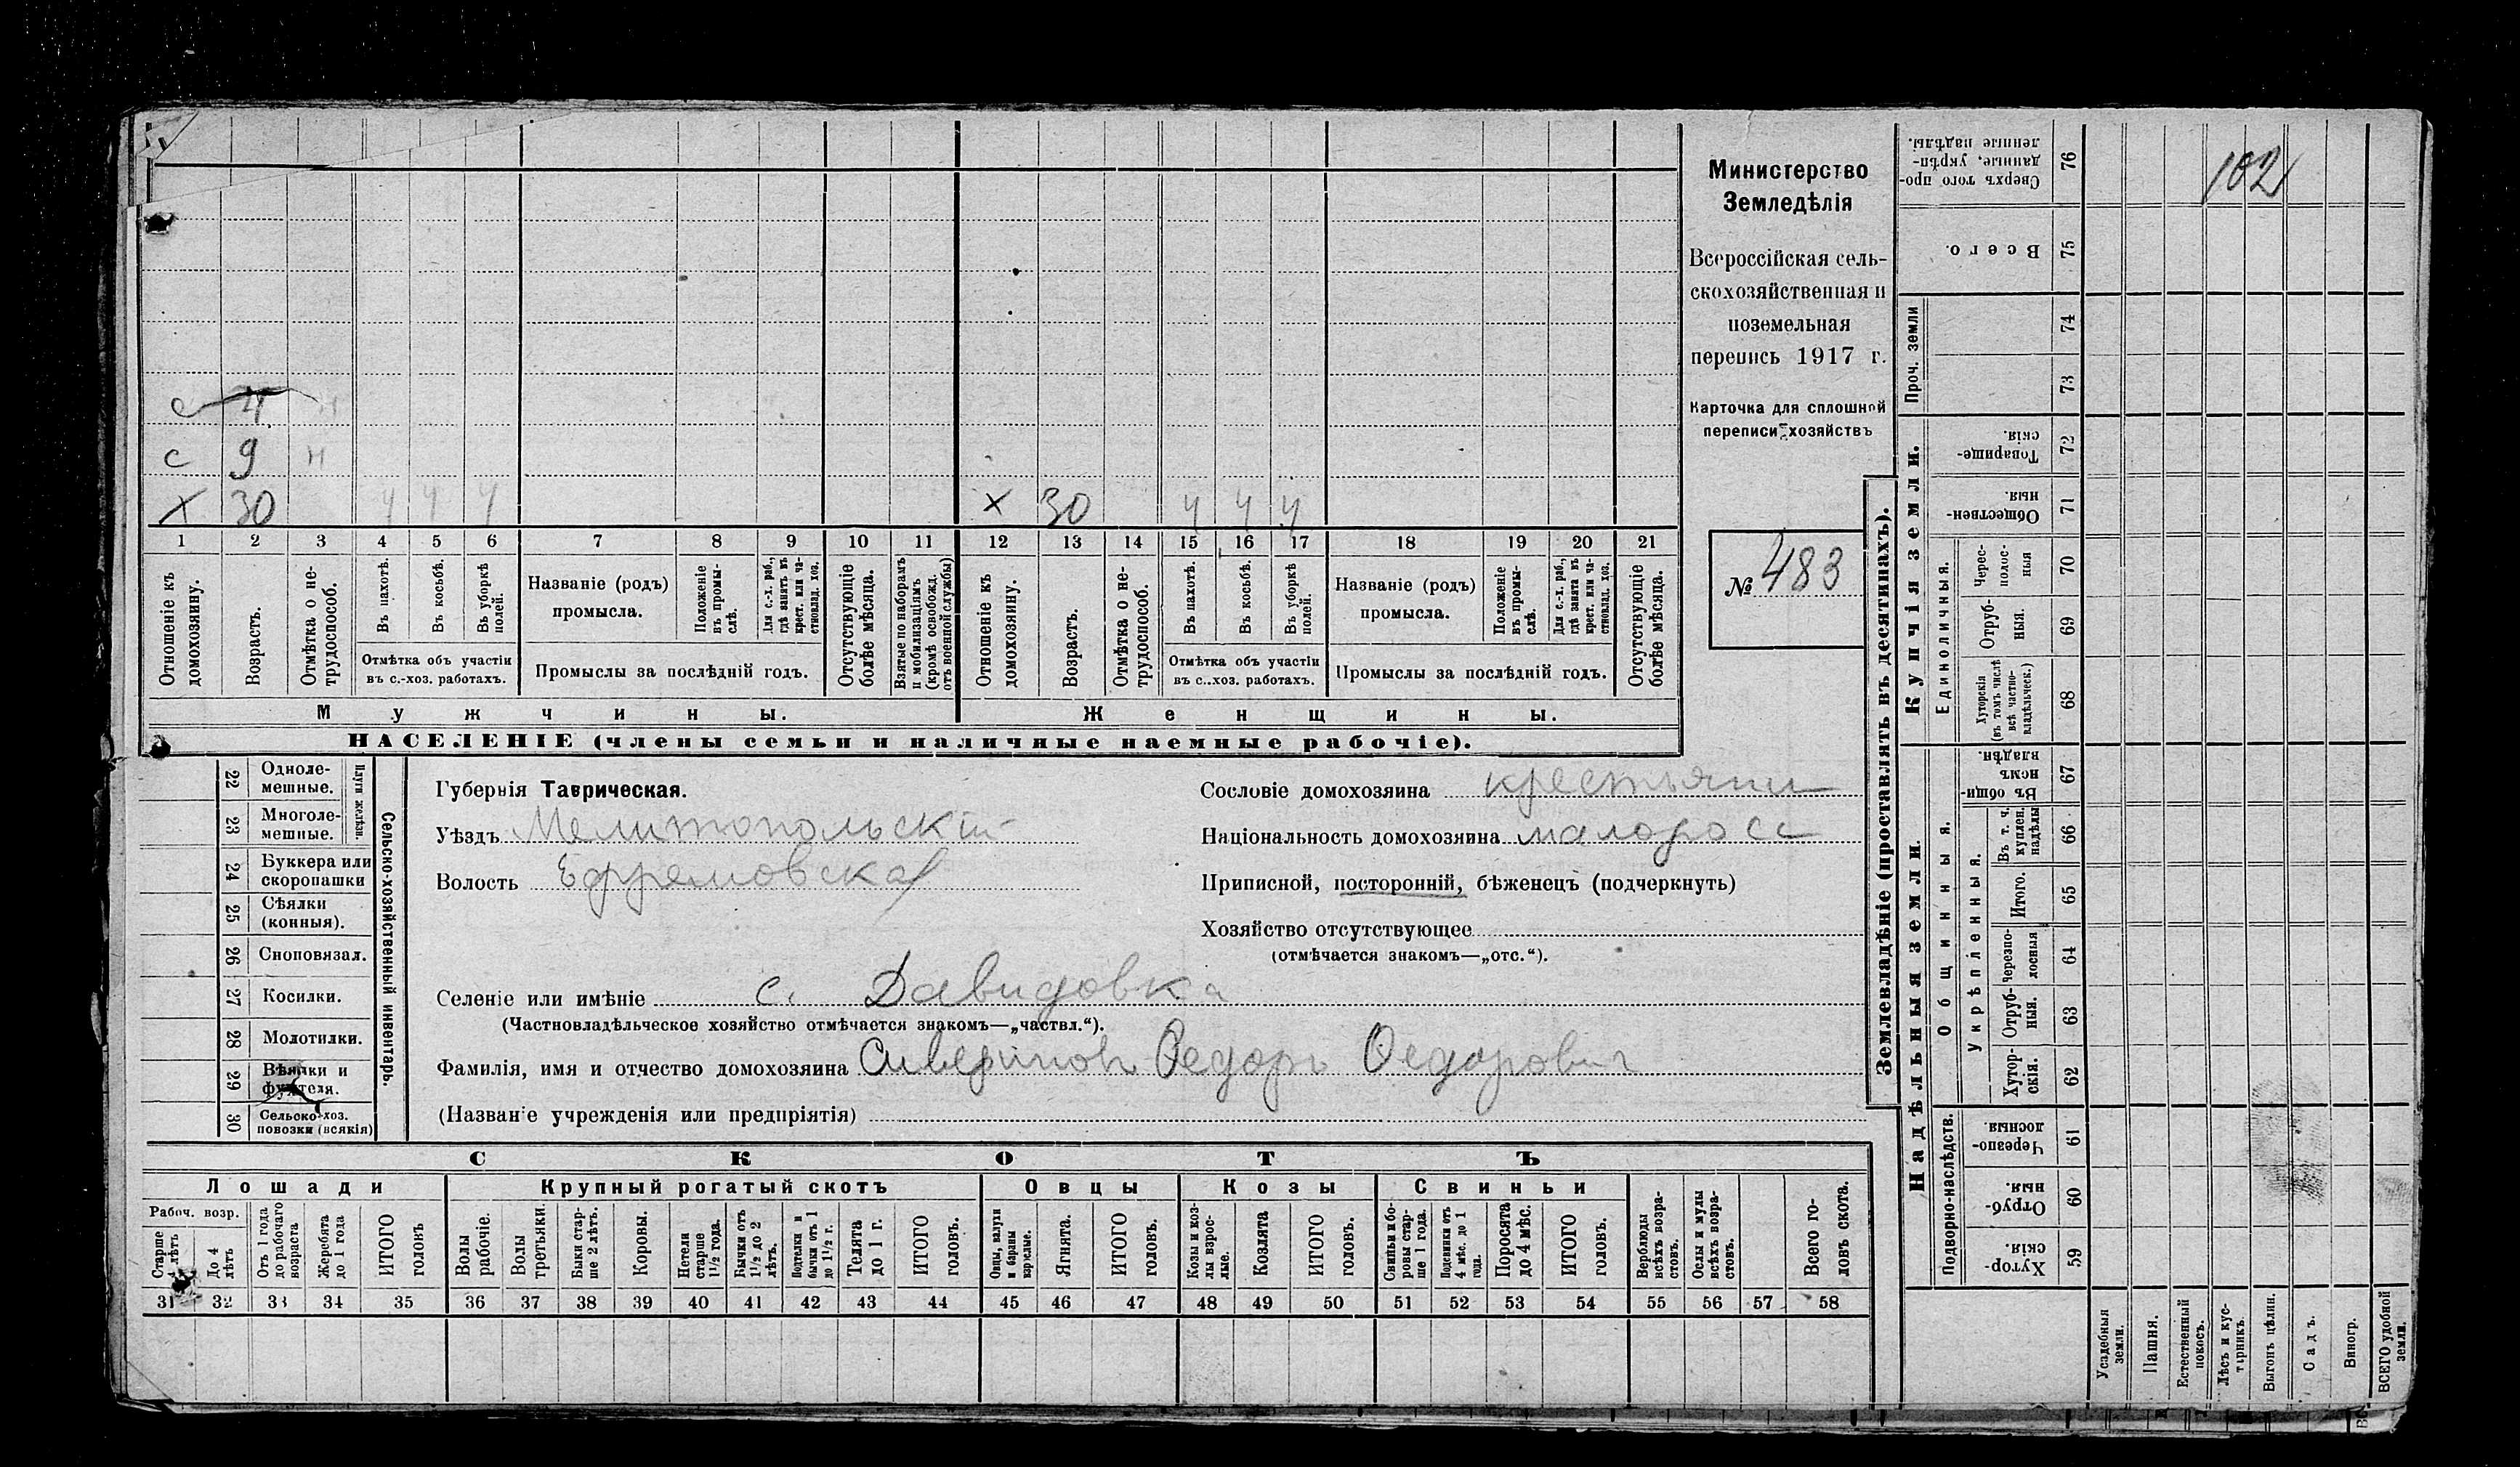 102
Министерство
Земледѣлія
Всероссійская сель-
скохозяйственная и
поземельная
перепись 1917 г.
Карточка для сплошной
переписи хозяйствъ
№ 483
с 4 н
с 9 н
х 30 ч ч ч х 30 ч ч ч
1 2 3 4 5 6 7 8 9 10 11 12 13 14 15 16 17 18 19 20 21
Отношеніе къ домохозяину.
Возрастъ.
Отмѣтка о не-трудоспособ.
Въ пахотѣ.
Въ косьбѣ.
Въ уборкѣ полей.
Отмѣтка объ участіи
въ с.-хоз. работахъ.
Названіе (родъ)
промысла.
Положеніе въ промы-слѣ.
Для с.-х. раб., гдѣ занятъ въ крест. или ча-стновлад. хоз.
Промыслы за послѣдній годъ.
Отсутствующіе болѣе мѣсяца.
Взятые по наборамъ и мобилизаціямъ (кромѣ освобожд. отъ военной службы)
Отношеніе къ домохозяину.
Возрастъ.
Отмѣтка о не-трудоспособ.
Въ пахотѣ.
Въ косьбѣ.
Въ уборкѣ полей.
Отмѣтка объ участіи
въ с.-хоз. работахъ.
Названіе (родъ)
промысла.
Положеніе въ промы-слѣ.
Для с.-х. раб., гдѣ занята въ крест. или ча-стновлад. хоз.
Промыслы за послѣдній годъ.
Отсутствующіе болѣе мѣсяца.
Мужчины. Женщины.
НАСЕЛЕНІЕ (члены семьи и наличные наемные рабочіе).
Сельско-хозяйственный инвентарь.
Плуги желѣзн.
22 Одноле-
мешные.
23 Многоле-
мешные.
24 Буккера или
скоропашки
25 Сѣялки
(конныя).
26 Сноповязал.
27 Косилки.
28 Молотилки.
29 Вѣялки и
фухтеля.
30 Сельско-хоз.
повозки (всякія)
Губернія Таврическая.
Уѣздъ Мелитопольскій
Волость Ефремовская
Сословіе домохозяина крестьянин
Національность домохозяина малоросс
Приписной, посторонній, бѣженецъ (подчеркнуть)
Хозяйство отсутствующее
(отмѣчается знакомъ—„отс.“).
Селеніе или имѣніе с. Давидовка
(Частновладѣльческое хозяйство отмѣчается знакомъ—„частвл.“).
Фамилія, имя и отчество домохозяина Федоръ Федорович
(Названіе учрежденія или предпріятія)
СКОТЪ
Лошади Крупный рогатый скотъ Овцы Козы Свиньи
Рабоч. возр.
Старше 4 лѣтъ
До 4 лѣтъ
Отъ 1 года до рабочаго возраста
Жеребята до 1 года
ИТОГО головъ
Волы рабочіе.
Волы третьяки.
Быки стар-ше 2 лѣтъ.
Коровы.
Нетели старше 1½ года.
Бычки отъ 1½ до 2 лѣтъ.
Подтелки и бычки отъ 1 до 1½ г.
Телята до 1 г.
ИТОГО головъ.
Овцы, валухи и бараны взрослые.
Ягнята.
ИТОГО головъ.
Козы и коз-лы взрос-лые.
Козлята
ИТОГО головъ.
Свиньи и бо-ровы стар-ше 1 года.
Подсвинки отъ 4 мѣс. до 1 года.
Поросята до 4 мѣс.
ИТОГО головъ.
Верблюды всѣхъ возра-стовъ.
Ослы и мулы всѣхъ возра-стовъ.
Всего го-ловъ скота.
31 32 33 34 35 36 37 38 39 40 41 42 43 44 45 46 47 48 49 50 51 52 53 54 55 56 57 58
Землевладѣніе (проставлять въ десятинахъ).
Сверхъ того про-данные, укрѣп-ленные надѣлы. 76
Всего. 75
Проч. земли
74
73
Купчія земли.
Товарище-скія. 72
Обществен-ныя 71
Единоличныя.
Черес-полос-ныя 70
Отруб-ныя. 69
Хуторскія (въ томъ числѣ всѣ частно-владѣльческ.) 68
Надѣльныя земли.
Общинныя.
Въ общин-номъ владѣн. 67
Укрѣпленныя.
Въ т. ч. куплен. надѣлы 66
Итого. 65
Черезпо-лосныя 64
Отруб-ныя. 63
Хутор-скія. 62
Подворно-наслѣдств.
Черезпо-лосныя. 61
Отруб-ныя. 60
Хутор-скія. 59
Усадебныя земли.
Пашня.
Естественный покосъ.
Лѣсъ и кус-тарникъ.
Выгонъ цѣлин.
Садъ.
Виногр.
ВСЕГО удобной земли.